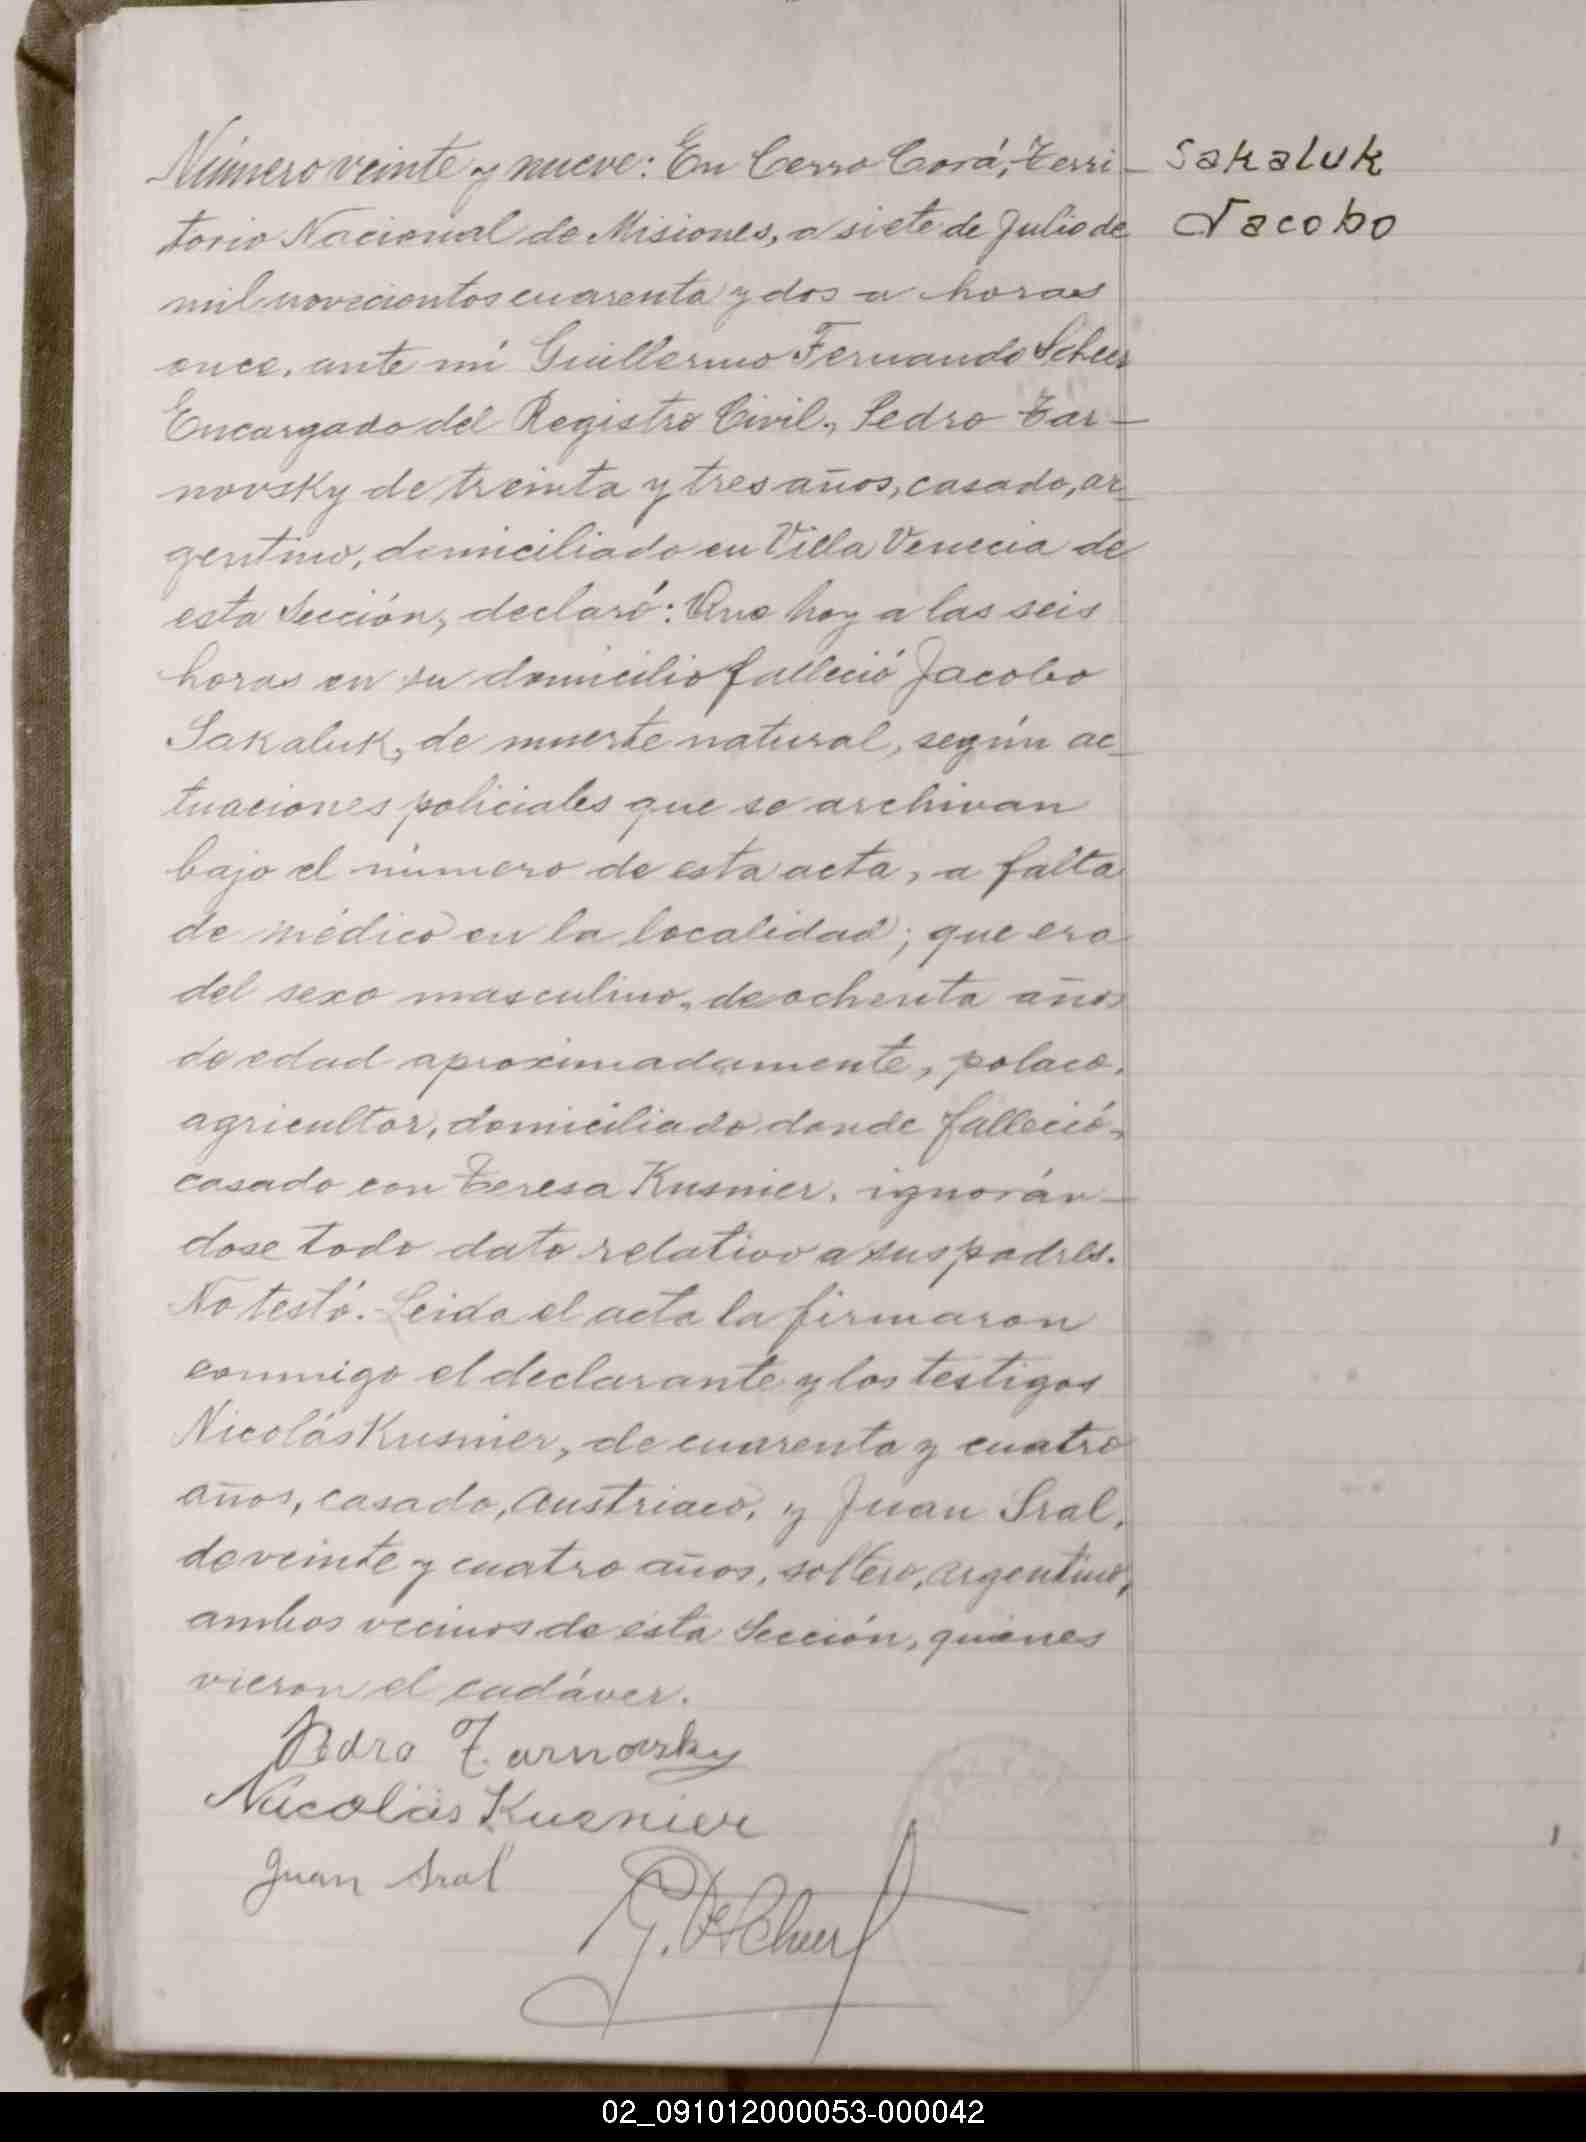 Número veinte y nueve: En Cerro Corá, Terri-
torio Nacional de Misiones, a siete de Julio de
mil novecientos cuarenta y dos a horas
once, ante mi Guillermo Fernando Scheer
Encargado del Registro Civil, Pedro Tar-
novsky de treinta y tres años, casado, ar-
gentino, domiciliado en Villa Venecia de
esta Sección, declaró: Que hoy a las seis
horas en su domicilio falleció Jacobo
Sakaluk, de muerte natural, según ac-
tuaciones policiales que se archivan
bajo el número de esta acta, a falta
de médico en la localidad; que era
del sexo masculino, de ochenta años
de edad aproximadamente, polaco,
agricultor, domiciliado donde falleció,
casado con Teresa Kusnier, ignorán-
dose todo dato relativo a sus padres.
No testó. Leida el acta la firmaron
conmigo el declarante y los testigos
Nicolás Kusnier, de cuarenta y cuatro
años, casado, austriaco, y Juan Sral,
de veinte y cuatro años, soltero, argentino,
ambos vecinos de esta Sección, quienes
vieron el cadáver.
Pedro Tarnovsky
Nicolás Kusnier
Juan Sral
G. F. Scheer
Sakaluk
Jacobo
02_091012000053-000042